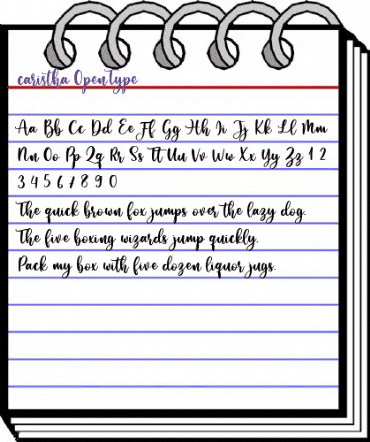 caristha OpenType
Aa Bb Cc Dd Ee Ff Gg Hh Ii Jj Kk Ll Mm
Nn Oo Pp Qq Rr Ss Tt Uu Vv Ww Xx Yy Zz 1 2
3 4 5 6 7 8 9 0
The quick brown fox jumps over the lazy dog.
The five boxing wizards jump quickly.
Pack my box with five dozen liquor jugs.